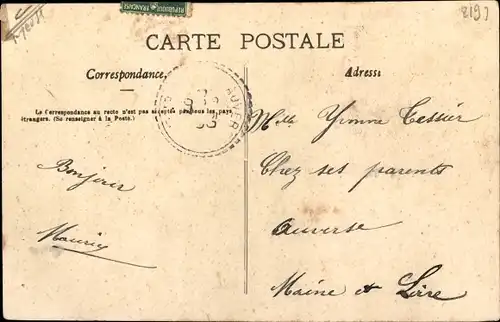 RÉPUBLIQUE FRANÇAISE
CARTE POSTALE
Correspondance,
Adresse
La Correspondance au recto n'est pas acceptée par tous les pays
étrangers. (Se renseigner à la Poste.)
AUVER
Bonjour
Maurice
Mlle Yvonne Tessier
Chez ses parents
Auverse
Maine et Loire